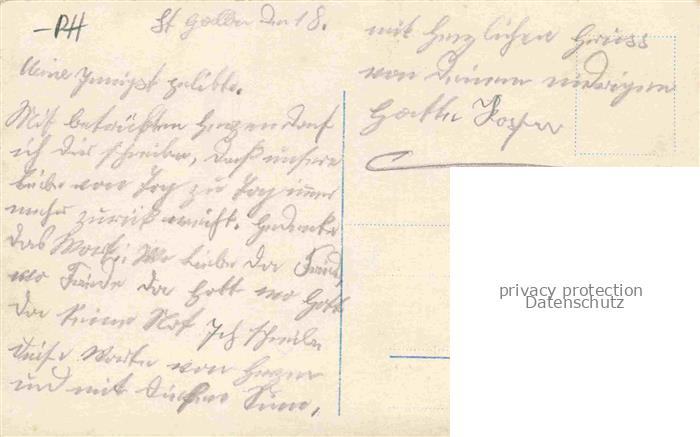 -PH
St Gallen den 18.
Meine Innigst geliebte.
Mit betrübten Herzen darf
ich dir schreiben, daß unsere
Liebe von Tag zu Tag immer
mehr zurück weicht. Gedenke
das Wort: Wo Liebe da Friede,
wo Friede da Gott wo Gott
da keine Not Ich schreibe
diese Worte von Herzen
und mit
mit Herzlichen Gruss
von Deinem
privacy protection
Datenschutz